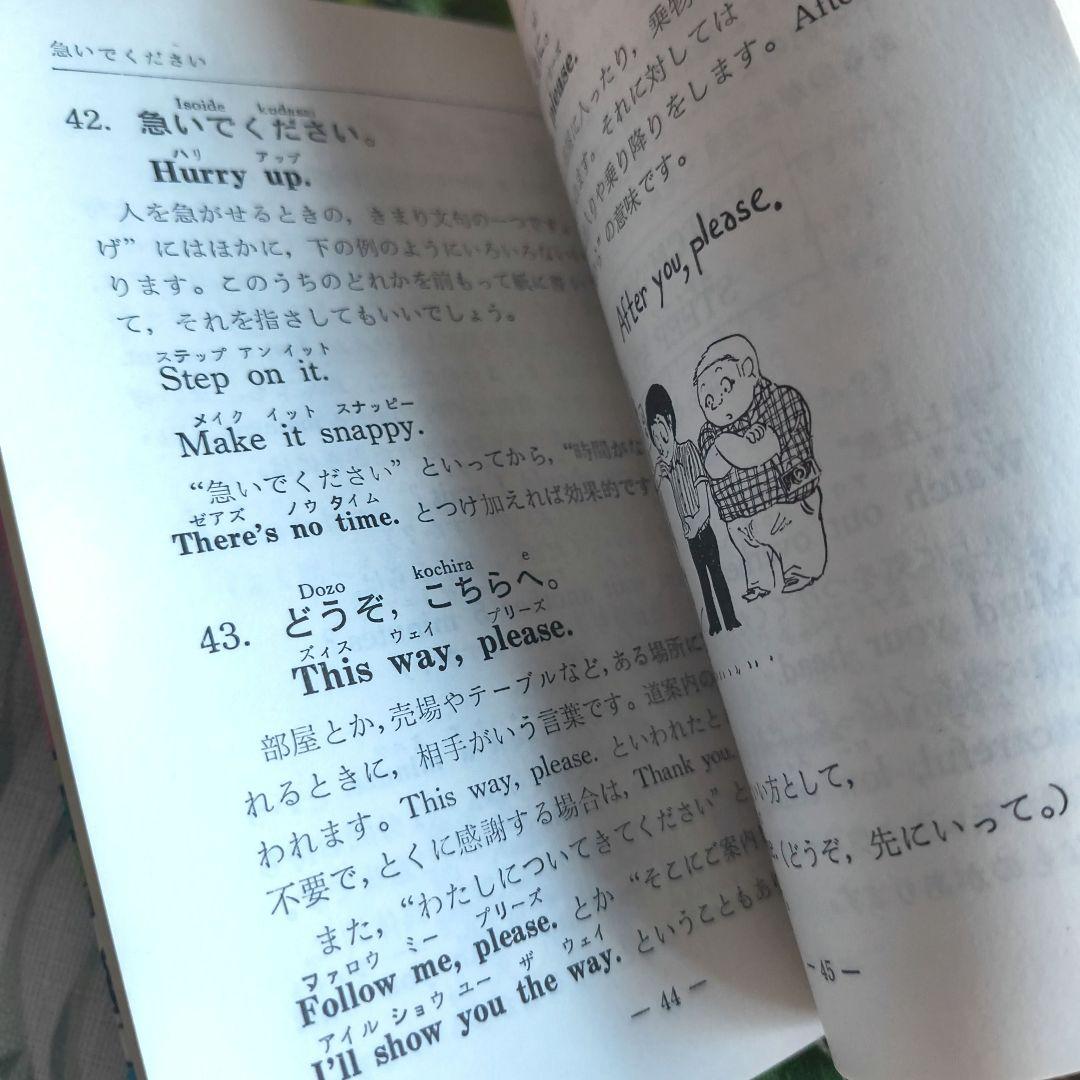 急いでください
Isoide kudasai
42. 急いでください。
ハリ アップ
Hurry up.
人を急がせるときの，きまり文句の一つです
げ” にはほかに，下の例のようにいろいろない
ります。このうちのどれかを前もって紙に書い
て，それを指さしてもいいでしょう。
ステップ アン イット
Step on it.
メイク イット スナッピー
Make it snappy.
“急いでください” といってから，“時間がな
ゼアズ ノウ タイム
There's no time. とつけ加えれば効果的です
Dozo kochira e
43. どうぞ，こちらへ。
ズィス ウェイ プリーズ
This way, please.
部屋とか，売場やテーブルなど，ある場所に
れるときに，相手がいう言葉です。道案内の
われます。This way, please. といわれたと
不要で，とくに感謝する場合は，Thank you.
また，“わたしについてきてください” と
ファロウ ミー プリーズ
Follow me, please. とか “そこにご案内
アイル ショウ ユー ザ ウェイ
I'll show you the way. ということもあ
— 44 —
please.
に入ったり，乗物
ます。それに対しては
りや乗り降りをします。After
” の意味です。
After you, please.
い方として，
(どうぞ，先にいって。)
— 45 —